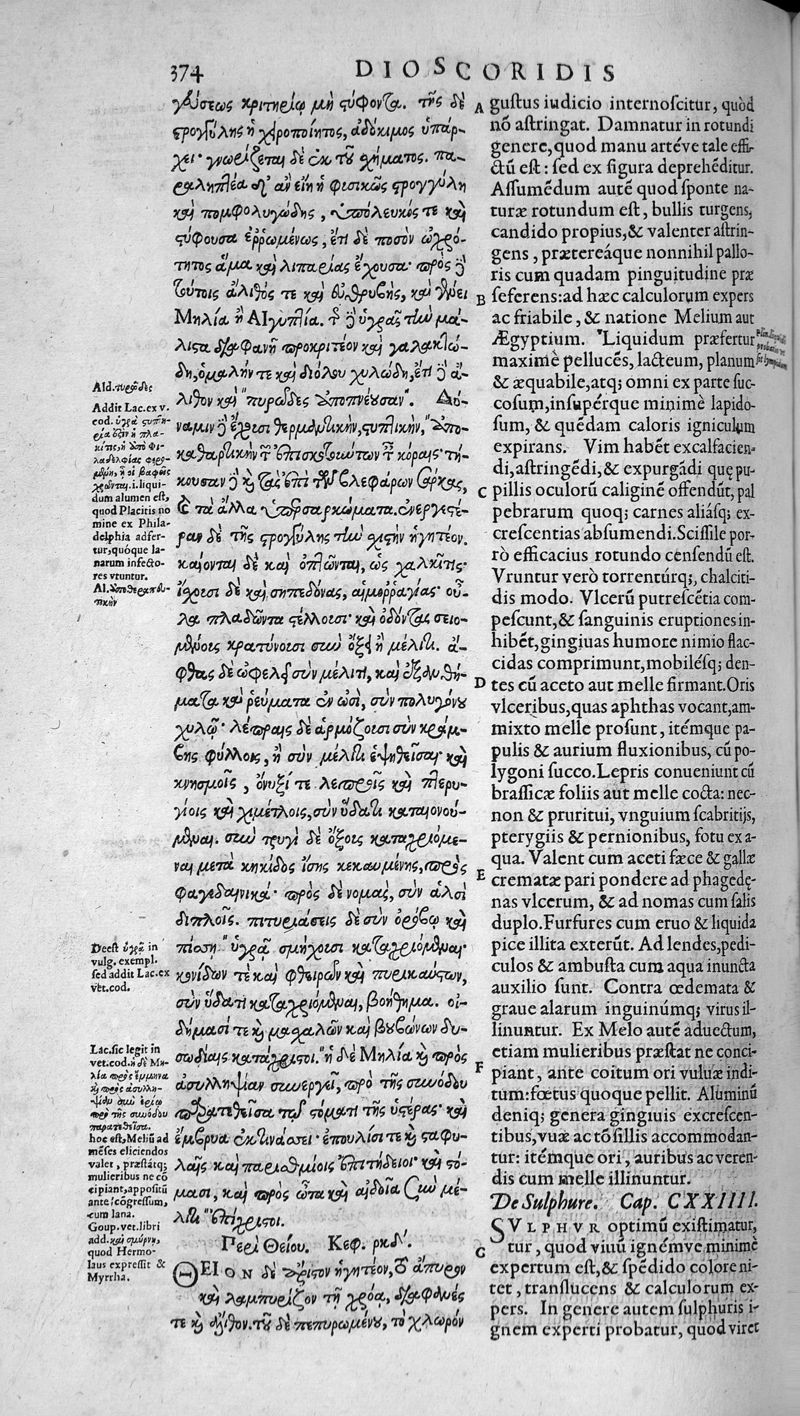 374 DIOSCORIDIS
γεύσεως κριτηρίῳ μὴ στύφοντα. τῆς δὲ
στρογγύλης ἡ χειροποίητος, ἀδόκιμος ὑπάρ-
χει· γνωρίζεται δὲ ἐκ τοῦ σχήματος. πα-
ραληπτέα δ' ἂν εἴη ἡ φυσικῶς στρογγύλη
καὶ πομφολυγώδης, ὑπόλευκός τε καὶ
στύφουσα ἐῤῥωμένως, ἔτι δὲ ποσὸν ὠχρό-
τητος ἅμα καὶ λιπαρίας ἔχουσα· πρὸς δὲ
τούτοις ἄλιθός τε καὶ εὐθρυβὴς, καὶ γένει
Μηλία ἢ Αἰγυπτία. τῆς δὲ ὑγρᾶς τὴν μά-
λιστα διαφανῆ προκριτέον καὶ γαλακτώ-
δη, ὁμαλήν τε καὶ διόλου χυλώδη, ἔτι δὲ ἄ-
λιθον καὶ πυρῶδες ἀποπνέουσαν. Δύ-
ναμιν δὲ ἔχουσι θερμαντικὴν, στυπτικὴν, ἀπο-
καθαρτικὴν τῶν ἐπισκοτούντων ταῖς κόραις· τή-
κουσαν δὲ καὶ τὰς ἐπὶ τῶν βλεφάρων σάρκας,
καὶ τὰ ἄλλα ὑπερσαρκώματα. ἐνεργεστέ-
ραν δὲ τῆς στρογγύλης τὴν σχιστὴν ἡγητέον.
καίονται δὲ καὶ ὀπτῶνται, ὡς χαλκῖτις·
ἴσχουσι δὲ καὶ σηπεδόνας, αἱμοῤῥαγίας· οὖ-
λα πλαδῶντα στέλλουσι· καὶ ὀδόντας σειο-
μένους κρατύνουσι σὺν ὄξει ἢ μέλιτι. ἄ-
φθας δὲ ὠφελεῖ σὺν μέλιτι, καὶ ἐξανθή-
ματα καὶ ῥεύματα ἐν ὠσὶ, σὺν πολυγόνου
χυλῷ· λέπραις δὲ ἁρμόζουσι σὺν κράμ-
βης φύλλοις, ἢ σὺν μέλιτι ἑψηθεῖσαι· καὶ
κνησμοῖς, ὄνυξί τε λεπροῖς καὶ πτερυ-
γίοις καὶ χιμέτλοις, σὺν ὕδατι καταιονού-
μεναι. σὺν τρυγὶ δὲ ὄξους καταχριόμε-
ναι μετὰ κηκίδος ἴσης κεκαυμένης, πρὸς
φαγεδαινικά· πρὸς δὲ νομὰς, σὺν ἁλσὶ
διπλοῖς. πιτυριάσεις δὲ σὺν ὀρόβῳ καὶ
πίσσῃ ὑγρᾷ σμήχουσι καταχριόμεναι·
κονίδων τε καὶ φθειρῶν καὶ πυρικαύτων,
σὺν ὕδατι καταχριόμεναι, βοήθημα. οἰ-
δήμασί τε καὶ μασχαλῶν καὶ βουβώνων δυ-
σωδίαις κατάχριστοι. ἡ δὲ Μηλία καὶ πρὸς
ἀσυλληψίαν συνεργεῖ, πρὸ τῆς συνόδου
προστεθεῖσα τῷ στόματι τῆς ὑστέρας· καὶ
ἔμβρυα ἐκτινάσσει· ἐπουλίσι τε καὶ σταφυ-
λαῖς καὶ παρισθμίοις ἐπιτήδειοι· καὶ στό-
μασι, καὶ πρὸς ὦτα καὶ αἰδοῖα σὺν μέ-
λιτι ἐπίχριστοι.
Περὶ Θείου. Κεφ. ρκδ'.
ΘΕΙΟΝ δὲ ἄριστον ἡγητέον, τὸ ἄπυρον
καὶ λαμπυρίζον τῇ χρόᾳ, διαφανές
τε καὶ ἄλιθον. τοῦ δὲ πεπυρωμένου, τὸ χλωρόν
Ald. πυρώδες
Addit Lac. ex v.
cod.
.i. liqui-
dum alumen est,
quod Placitis no
mine ex Phila-
delphia adfer-
tur, quóque la-
narum infecto-
res vtuntur.
Deest ὑγρᾷ in
vulg. exempl.
sed addit Lac. ex
vet. cod.
Lac. sic legit in
vet. cod.
hoc est, Meliū ad
mēses eliciendos
valet, præstátq;
mulieribus ne cō
cipiant, appositū
ante cōgressum,
cum lana.
Goup. vet. libri
add. καὶ σμύρνῃ,
quod Hermo-
laus expressit &
Myrrha.
A gustus iudicio internoscitur, quòd
nō astringat. Damnatur in rotundi
genere, quod manu artéve tale effi-
ctū est: sed ex figura deprehéditur.
Assumēdum autē quod sponte na-
turæ rotundum est, bullis turgens,
candido propius, & valenter astrin-
gens, prætereáque nonnihil pallo-
ris cum quadam pinguitudine præ
B seferens: ad hæc calculorum expers
ac friabile, & natione Melium aut
Ægyptium. "Liquidum præfertur
maximè pellucēs, lacteum, planum
& æquabile, atq; omni ex parte suc-
cosum, insupérque minimè lapido-
sum, & quēdam caloris igniculum
expirans. Vim habēt excalfacien-
di, astringēdi, & expurgādi quę pu-
C pillis oculorū caliginē offendūt, pal
pebrarum quoq; carnes aliásq; ex-
crescentias absumendi. Scissile por-
rò efficacius rotundo censendū est.
Vruntur verò torrentúrq;, chalciti-
dis modo. Vlcerū putrescētia com-
pescunt, & sanguinis eruptiones in-
hibēt, gingiuas humore nimio flac-
cidas comprimunt, mobilésq; den-
D tes cū aceto aut melle firmant. Oris
vlceribus, quas aphthas vocant, am-
mixto melle prosunt, itémque pa-
pulis & aurium fluxionibus, cū po-
lygoni succo. Lepris conueniunt cū
brassicæ foliis aut melle cocta: nec-
non & pruritui, vnguium scabritijs,
pterygiis & pernionibus, fotu ex a-
qua. Valent cum aceti fæce & gallæ
E crematæ pari pondere ad phagedę-
nas vlcerum, & ad nomas cum salis
duplo. Furfures cum eruo & liquida
pice illita exterūt. Ad lendes, pedi-
culos & ambusta cum aqua inuncta
auxilio sunt. Contra œdemata &
graue alarum inguinúmq; virus il-
linuntur. Ex Melo autē aduectum,
etiam mulieribus præstat ne conci-
F piant, ante coitum ori vuluæ indi-
tum: fœtus quoque pellit. Aluminū
deniq; genera gingiuis excrescen-
tibus, vuæ ac tōsillis accommodan-
tur: itémque ori, auribus ac veren-
dis cum melle illinuntur.
De Sulphure. Cap. CXXIIII.
SVLPHVR optimū existimatur,
G tur, quod viuū ignémve minimè
expertum est, & spédido colore ni-
tet, translucens & calculorum ex-
pers. In genere autem sulphuris i-
gnem experti probatur, quod viret